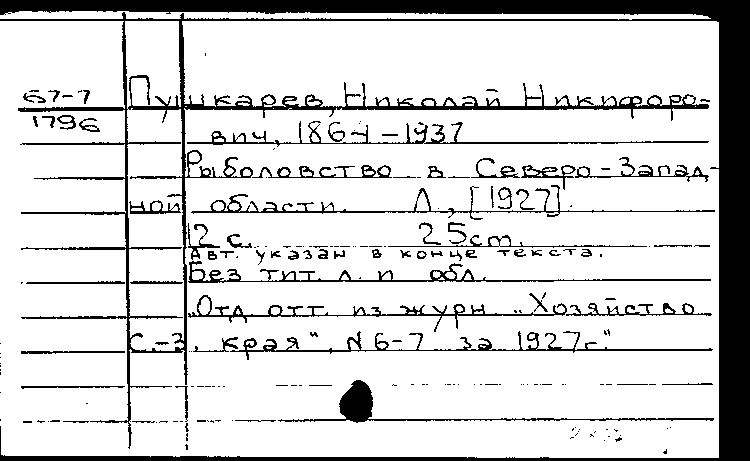 67-7
1796
Пушкарев, Николай Никифоро-
вич, 1864-1937
Рыболовство в Северо-Запад-
ной области. Л, [1927].
12 с. 25см.
Авт. указан в конце текста.
Без тит. л. и обл.
„Отд. отт. из журн „Хозяйство
С.-З. края", N 6-7 за 1927г."